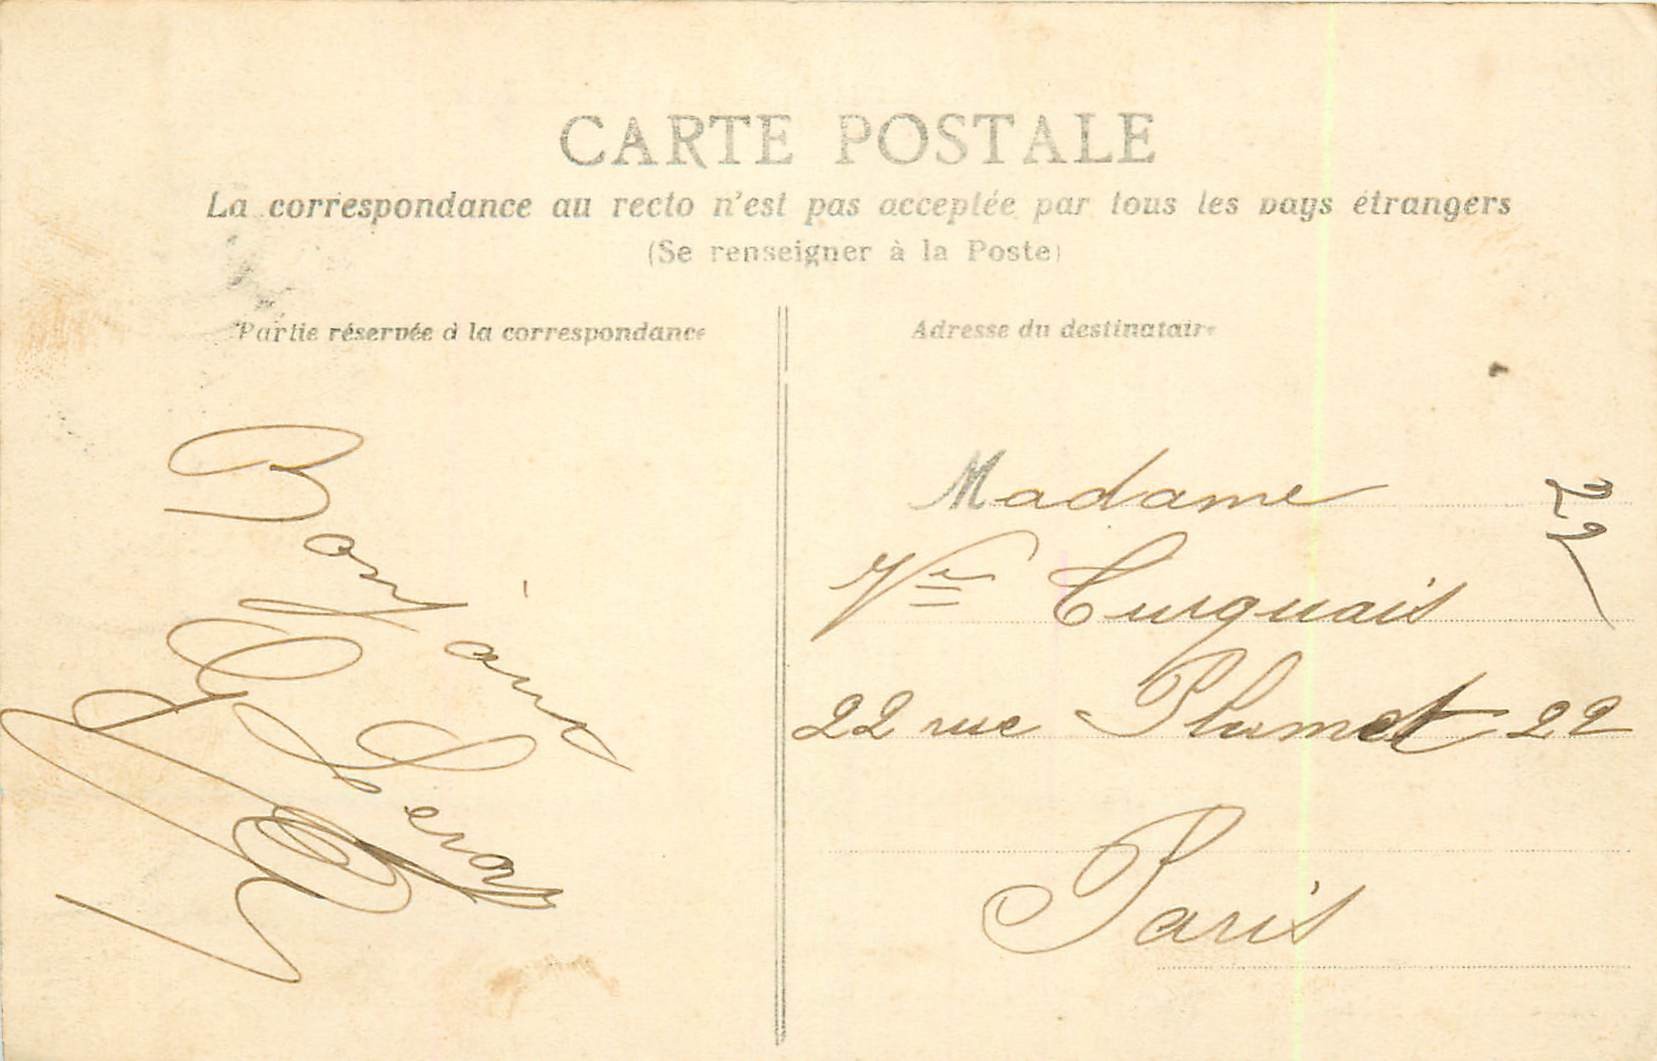 CARTE POSTALE
La correspondance au recto n'est pas acceptée par tous les pays étrangers
(Se renseigner à la Poste)
Partie réservée à la correspondance
Bonjour
Adresse du destinataire
Madame
Vve Turquais
22 rue Plumet 22
Paris
22